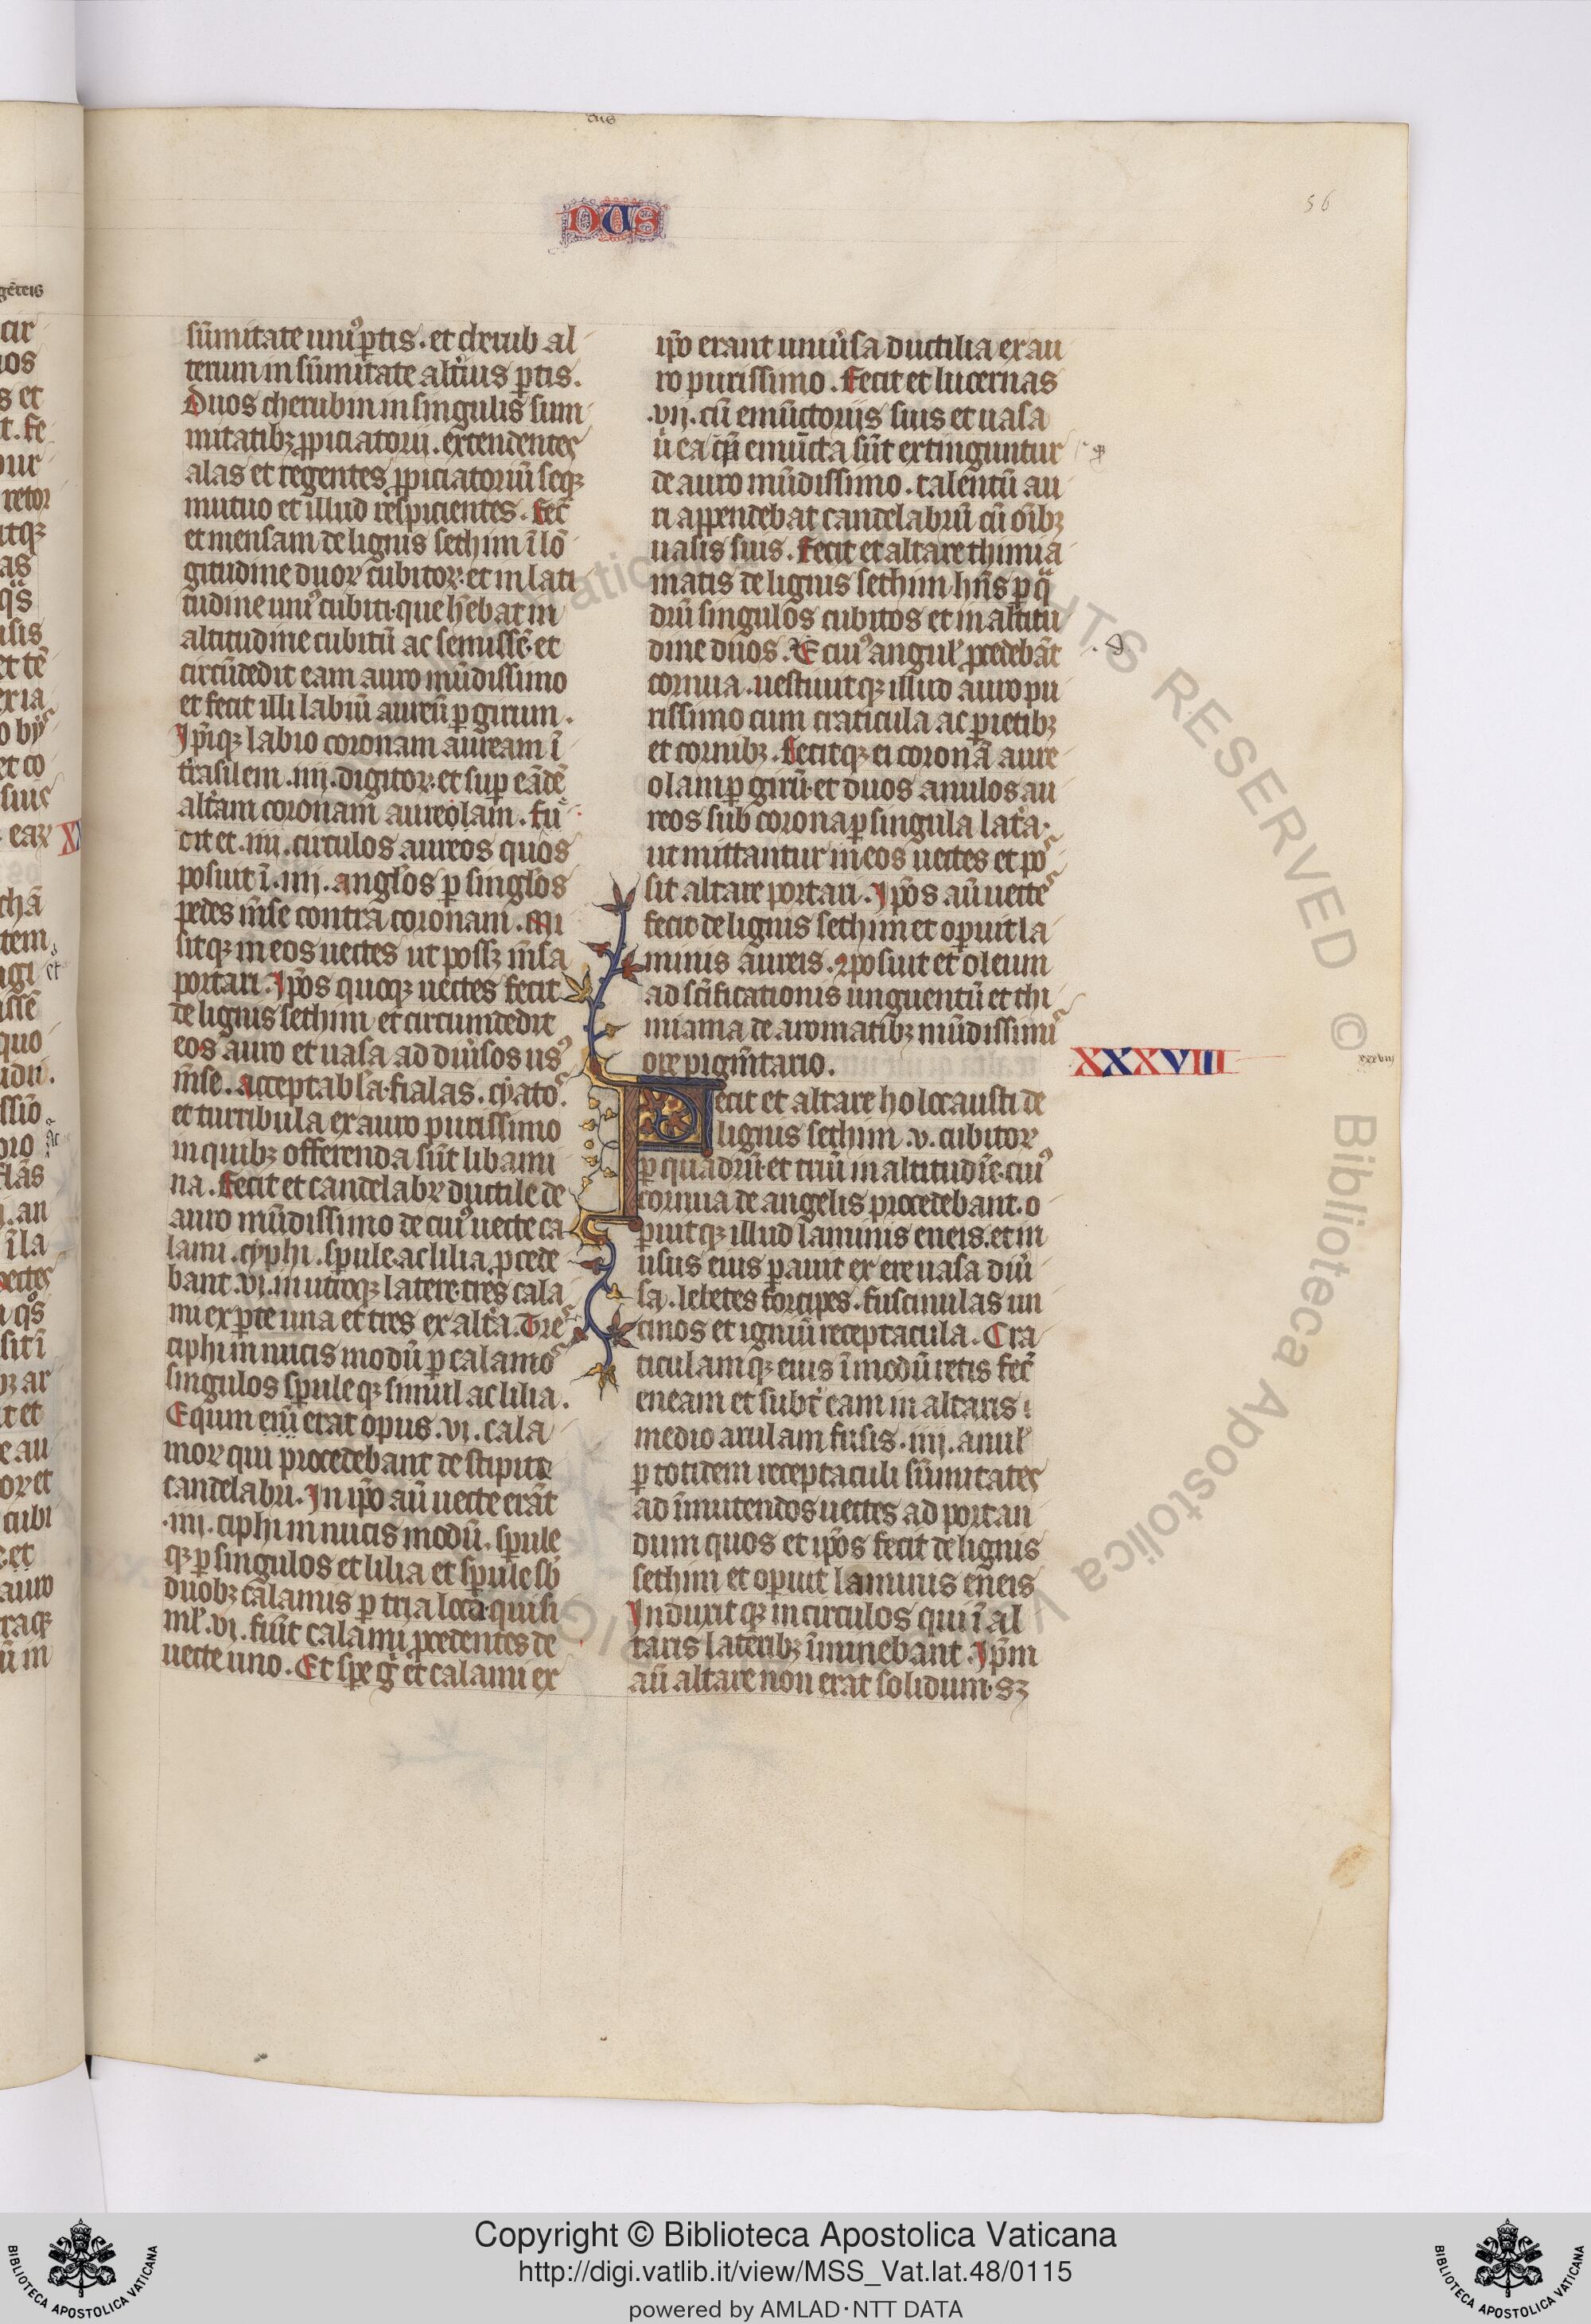 DUS
56
sūmitate uniꝰ ꝑtis . et cherub al
terum in sūmitate alt̾ius ꝑtis .
Duos cherubin in singulis sum
mitatibꝫ ꝓpiciatorii . extendentes
alas et tegentes ꝓpiciatoriū seqꝫ
mutuo et illud respicientes . Fec̄
et mensam de lignis sethim ī lō
gitudine duoꝝ cubitoꝝ · et in lati
tudine uniꝰ cubiti · que h̄ebat in
altitudine cubitū ac semissē · et
circūdedit eam auro mūdissimo
et fecit illi labiū aureū ꝑ girum .
Ip̄iqꝫ labio coronam auream ī
t̾rasilem . iiij . digitoꝝ · et suꝑ eādē
alt̾am coronam aureolam . Fu
dit et . iiii . circulos aureos quos
posuit ī . iiij . angłos ꝑ singłos
pedes m̄se contra coronam . Mi
sitqꝫ in eos uectes ut possꝫ m̄sa
portari . Ip̄os quoqꝫ uectes fecit
de lignis sethim et circumdedit
eos auro et uasa ad diu̾sos usꝰ
m̄se . Acceptabła · fialas . cyatos .
et turribula ex auro purissimo
in quibꝫ offerenda sūt libami
na . Fecit et candelabꝝ ductile de
auro mūdissimo de cuiꝰ uecte ca
lami . cyphi . sperule · ac lilia ꝓcede
bant . vi . in utroqꝫ latere · tres cala
mi ex ꝑte una et tres ex alt̾a . Tres
ciphi in nucis modū ꝑ calamos
singulos sperule qꝫ simul ac lilia .
Equm eni erat opus . vi . cala
moꝝ qui procedebant de stipite
candelabri . In ip̄o aū uecte erāt
. iiii . ciphi in nucis modū . sperule
qꝫ ꝑ singulos et lilia et sperule sb̾
duobꝫ calamis ꝑ tria loca · qui si
mł . vi . fiūt calami ꝓcedentes de
uecte uno . Et sper̄e g̾ et calami ex
ip̄o erant uniu̾sa ductilia ex au
ro purissimo . Fecit et lucernas
. vij . cū emūctoriis suis et uasa
ū ea que emūcta sūt extinguntur
de auro mūdissimo . talentū au
ri appendebat candelabrū cū oībꝫ
uasis suis . Fecit et altare thimia
matis de lignis sethim hn̄s ꝑ q̄
drū singulos cubitos et in altitu
dine duos . E cuiꝰ anguł ꝓcedebāt
cornua . uestiuitqꝫ illud auro pu
rissimo cum craticula ac pietibꝫ
et cornibꝫ . Fecitqꝫ ei coronā aure
olam ꝑ girū · et duos anulos au
reos sub corona ꝑ singula lat̾a ·
ut mittantur in eos uectes et pos
sit altare portari . Ip̄os aū uectes
fecit de lignis sethim et operuit la
minis aureis . ꝯposuit et oleum
ad sc̄ificationis unguentū et thi
miama de aromatibꝫ mūdissimis
ore pigm̄tario .
XXXVIII
xxxviij
Fecit et altare holocausti de
lignis sethim . v . cubitoꝝ
ꝑ quadrū · et triū in altitudīe · cuiꝰ
cornua de angelis procedebant . o
ꝑuitqꝫ illud laminis eneis . et in
usus eius ꝑauit ex ere uasa diu̾
sa . lebetes forcipes . fuscinulas un
cinos et igniū receptacula . Cra
ticulamqꝫ eius ī modū retis fec̄
eneam et subt̾ eam in altaris
medio arulam fusis . iiij . anuł
ꝑ totidem receptaculi sūmitates
ad īmitendos uectes ad portan
dum quos et ip̄os fecit de lignis
sethim et opuit laminis eneis
Induxitqꝫ in circulos qui ī al
taris laterībꝫ īminebant . Ip̄m
aū altare non erat solidum · sꝫ
Copyright © Biblioteca Apostolica Vaticana
http://digi.vatlib.it/view/MSS_Vat.lat.48/0115
powered by AMLAD·NTT DATA
BIBLIOTECA APOSTOLICA VATICANA
BIBLIOTECA APOSTOLICA VATICANA